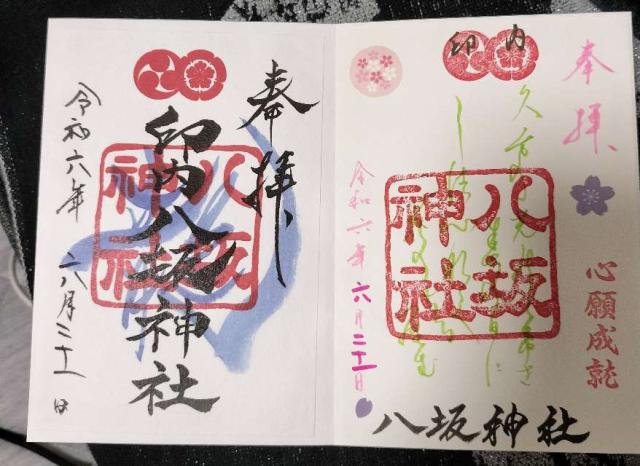 奉拝
心願成就
印内
八坂
神社
八坂神社
令和六年六月二十一日
奉拝
印内八坂神社
八坂
神社
令和六年
六月二十一日